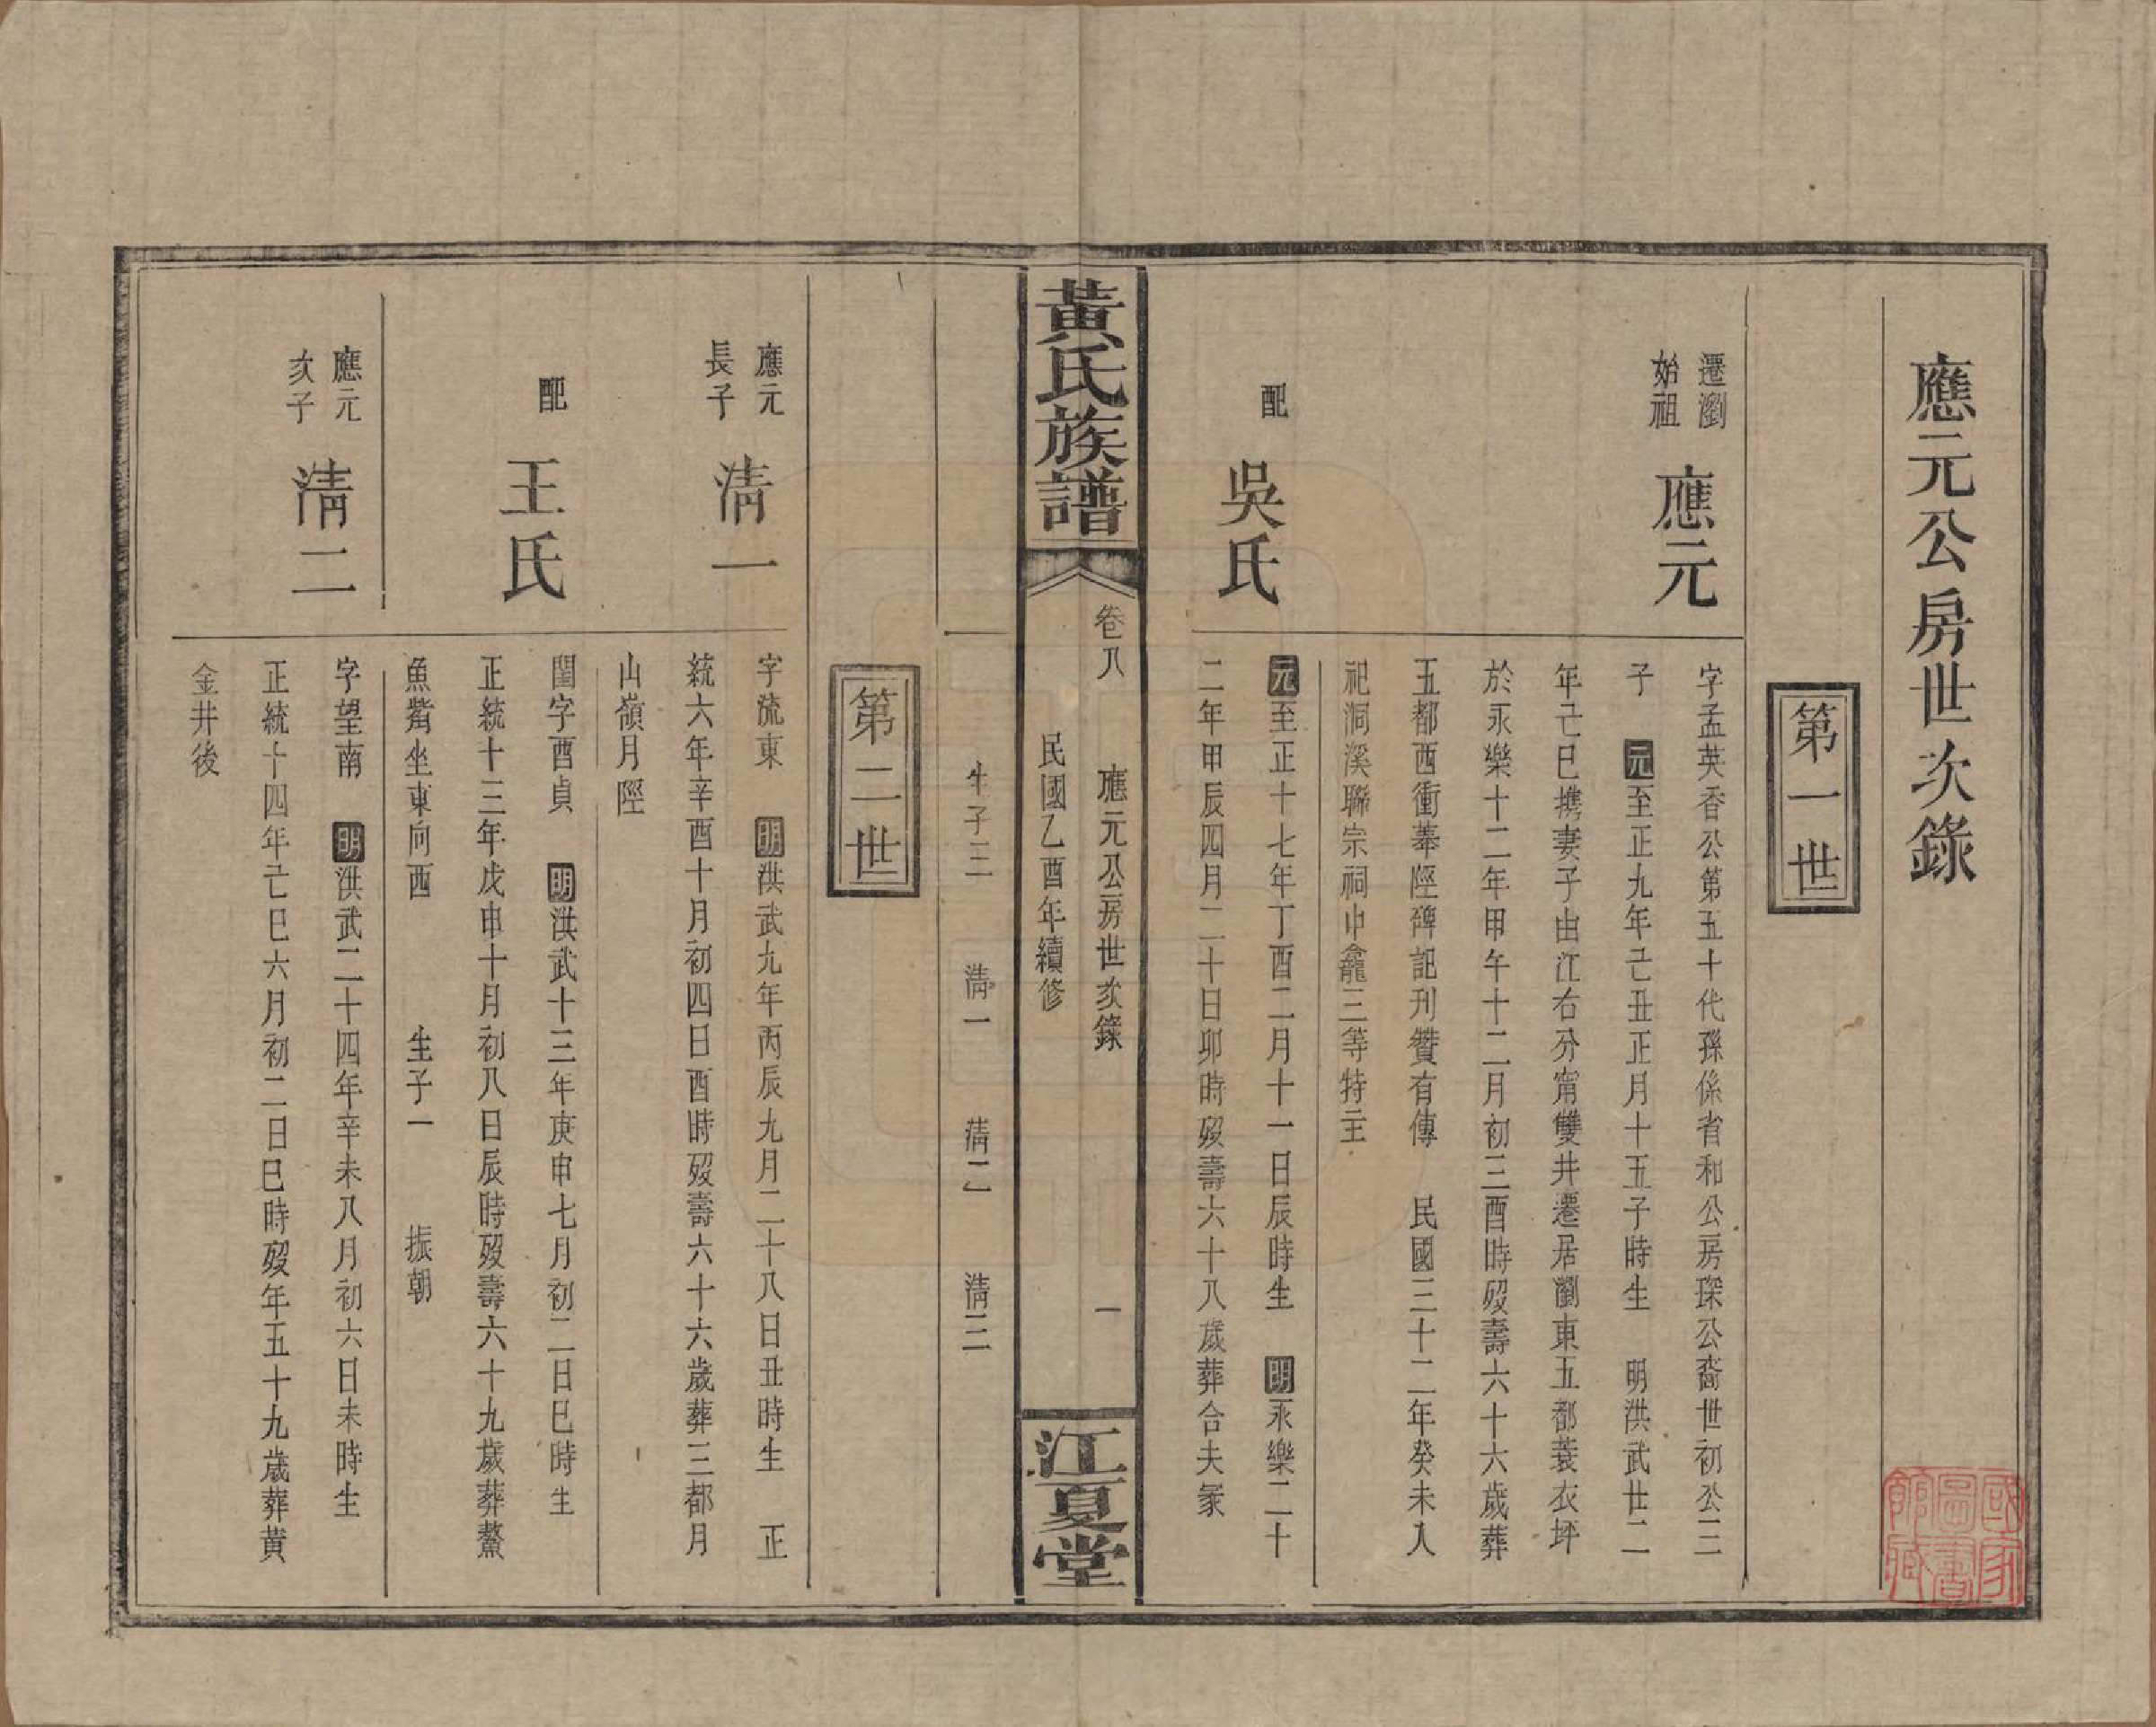 應元公房世次錄
第一世
遷瀏
始祖
應元
字孟英香公第五十代孫係省和公房琛公裔世初公三
子 元至正九年己丑正月十五子時生 明洪武廿二
年己巳擕妻子由江右分甯雙井遷居瀏東五都蓑衣坪
於永樂十二年甲午十二月初三酉時歿壽六十六歲葬
五都西衝墓陘碑記刋贊有傳 民國三十二年癸未入
祀洞溪聯宗祠中龕三等特主
配
吳氏
元至正十七年丁酉二月十一日辰時生 明永樂二十
二年甲辰四月二十日卯時歿壽六十八歲葬合夫冢
黃氏族譜
卷八 應元公房世次錄 一
民國乙酉年續修
江夏堂
生子三 淸一 淸二 淸三
第二世
應元
長子
淸一
字流東 明洪武九年丙辰九月二十八日丑時生 正
統六年辛酉十月初四日酉時歿壽六十六歲葬三都月
山嶺月陘
配
王氏
閨字酉貞 明洪武十三年庚申七月初二日巳時生
正統十三年戊申十月初八日辰時歿壽六十九歲葬鰲
魚嘴坐東向西 生子一 振朝
應元
次子
淸二
字望南 明洪武二十四年辛未八月初六日未時生
正統十四年己巳六月初二日巳時歿年五十九歲葬黃
金井後
國家圖書館藏